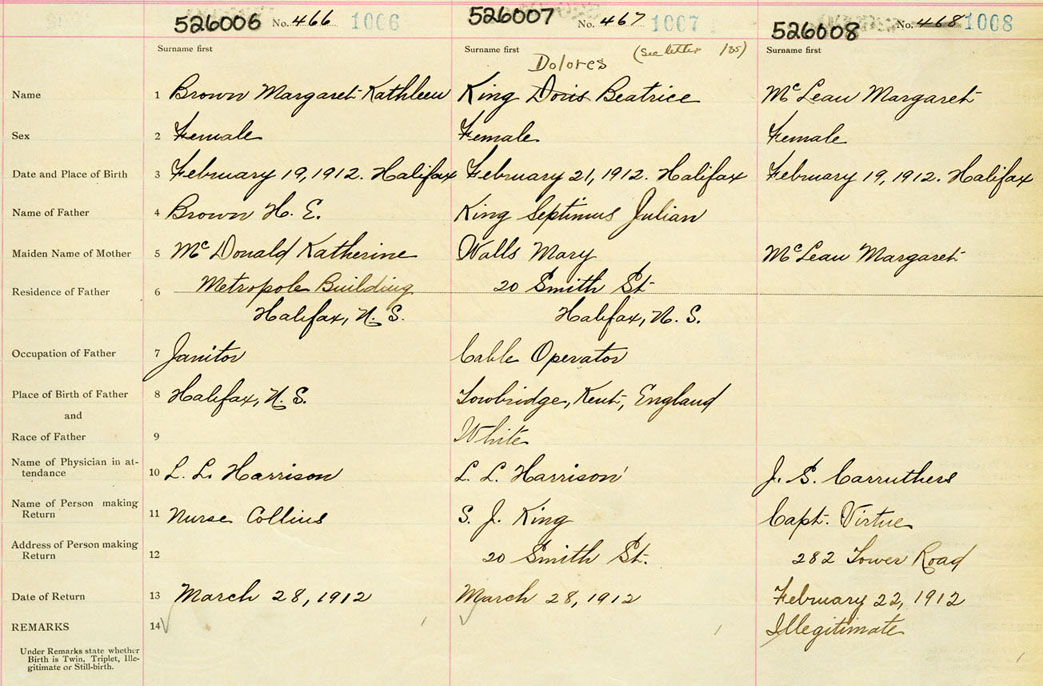 526006 No. 466 1006 526007 No. 467 1007 526008 No. 468 1008
Surname first Surname first (See letter /35) Surname first
Dolores
Name 1 Brown Margaret Kathleen King Doris Beatrice McLean Margaret
Sex 2 Female Female Female
Date and Place of Birth 3 February 19, 1912. Halifax February 21, 1912. Halifax February 19, 1912. Halifax
Name of Father 4 Brown H. E. King Septimus Julian
Maiden Name of Mother 5 McDonald Katherine Walls Mary McLean Margaret
Residence of Father 6 Metropole Building 20 Smith St
Halifax, N. S. Halifax, N. S.
Occupation of Father 7 Janitor Cable Operator
Place of Birth of Father 8 Halifax, N. S. Towbridge, Kent, England
and
Race of Father 9 White
Name of Physician in at-
tendance 10 L. L. Harrison L. L. Harrison J. S. Carruthers
Name of Person making
Return 11 Nurse Collins S. J. King Capt. Virtue
Address of Person making
Return 12 20 Smith St. 282 Tower Road
Date of Return 13 March 28, 1912 March 28, 1912 February 22, 1912
REMARKS 14 Illegitimate
Under Remarks state whether
Birth is Twin, Triplet, Ille-
gitimate or Still-birth.